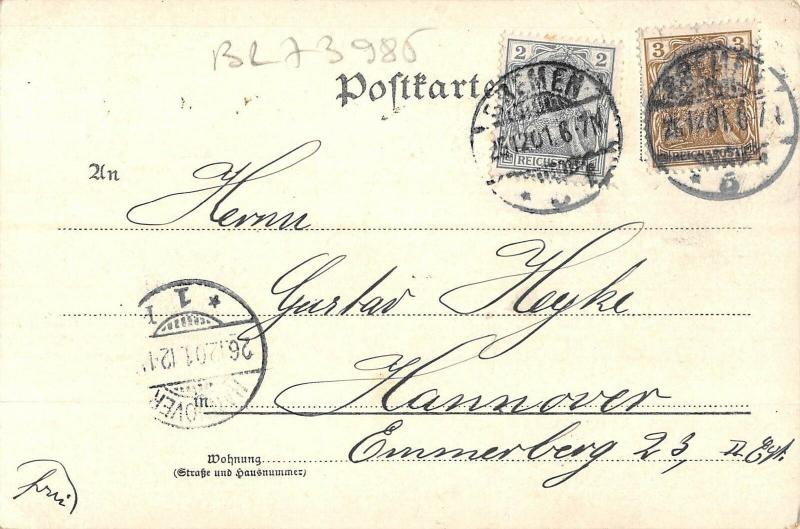 BL73986
Postkarte
2
REICHSPOST
3
REICHSPOST
BREMEN
26.12.01.6-7N.
* 5 *
BREMEN
26.12.01.6-7N.
* 5 *
An
Herrn
Gustav Heyke
HANNOVER
26.12.01.12-1
* 1
in Hannover
Emmerberg 23, II Etg.
Wohnung
(Straße und Hausnummer)